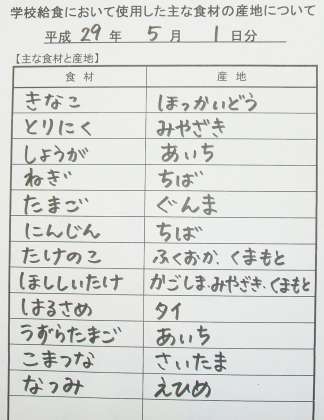 学校給食において使用した主な食材の産地について
平成 29 年 5 月 1 日分
【主な食材と産地】
食 材 産 地
きなこ ほっかいどう
とりにく みやざき
しょうが あいち
ねぎ ちば
たまご ぐんま
にんじん ちば
たけのこ ふくおか、くまもと
ほししいたけ かごしま、みやざき、くまもと
はるさめ タイ
うずらたまご あいち
こまつな さいたま
なつみ えひめ